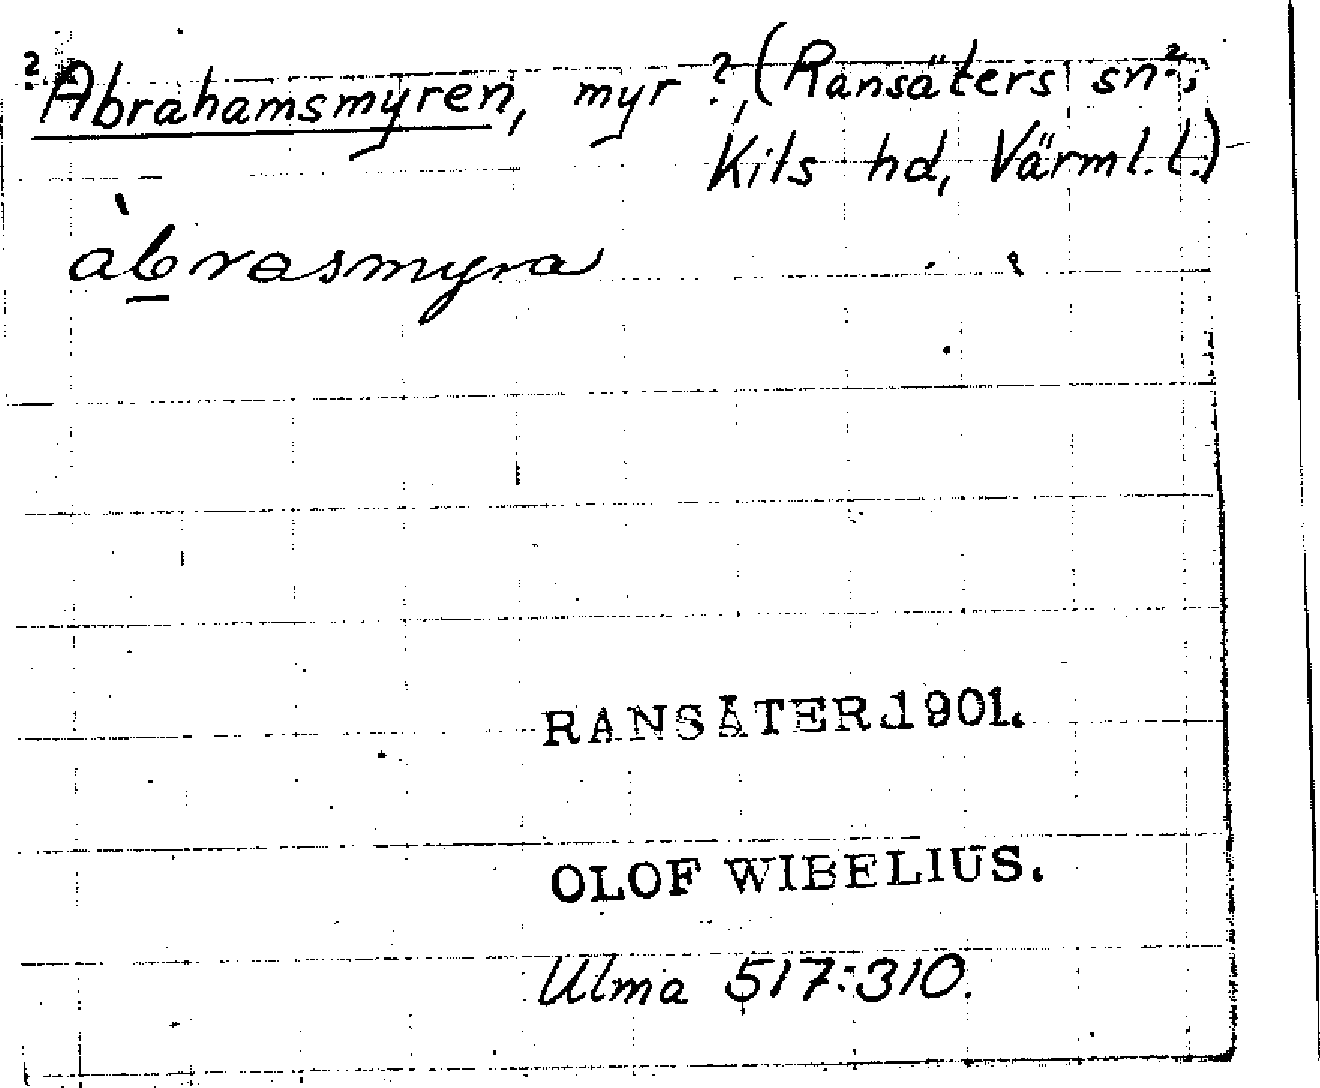 ? Abrahamsmyren, myr ?, (Ransäters sn?,
Kils hd, Värml.l.)
àbrasmyra
RANSÄTER 1901.
OLOF WIBELIUS.
Ulma 517:310.